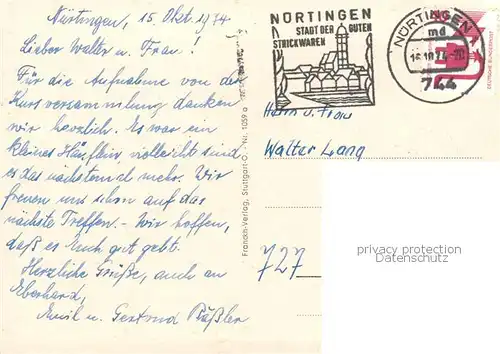 Nürtingen, 15. Okt. 1974
Lieber Walter u. Frau!
Für die Aufnahme von der
Kursversammlung danken
wir herzlich. Es war ein
kleines Häuflein, vielleicht sind
es das nächstemal mehr. Wir
freuen uns schon auf das
nächste Treffen. - Wir hoffen,
daß es Euch gut geht.
Herzliche Grüße, auch an
Eberhard,
Emil u. Gertrud Räßler
Franckh-Verlag, Stuttgart-O. · Nr. 1059 a
NÜRTINGEN
STADT DER GUTEN
STRICKWAREN
NÜRTINGEN 1
md
16.10.74-20
744
DEUTSCHE BUNDESPOST
Herrn u. Frau
Walter Lang
727
privacy protection
Datenschutz